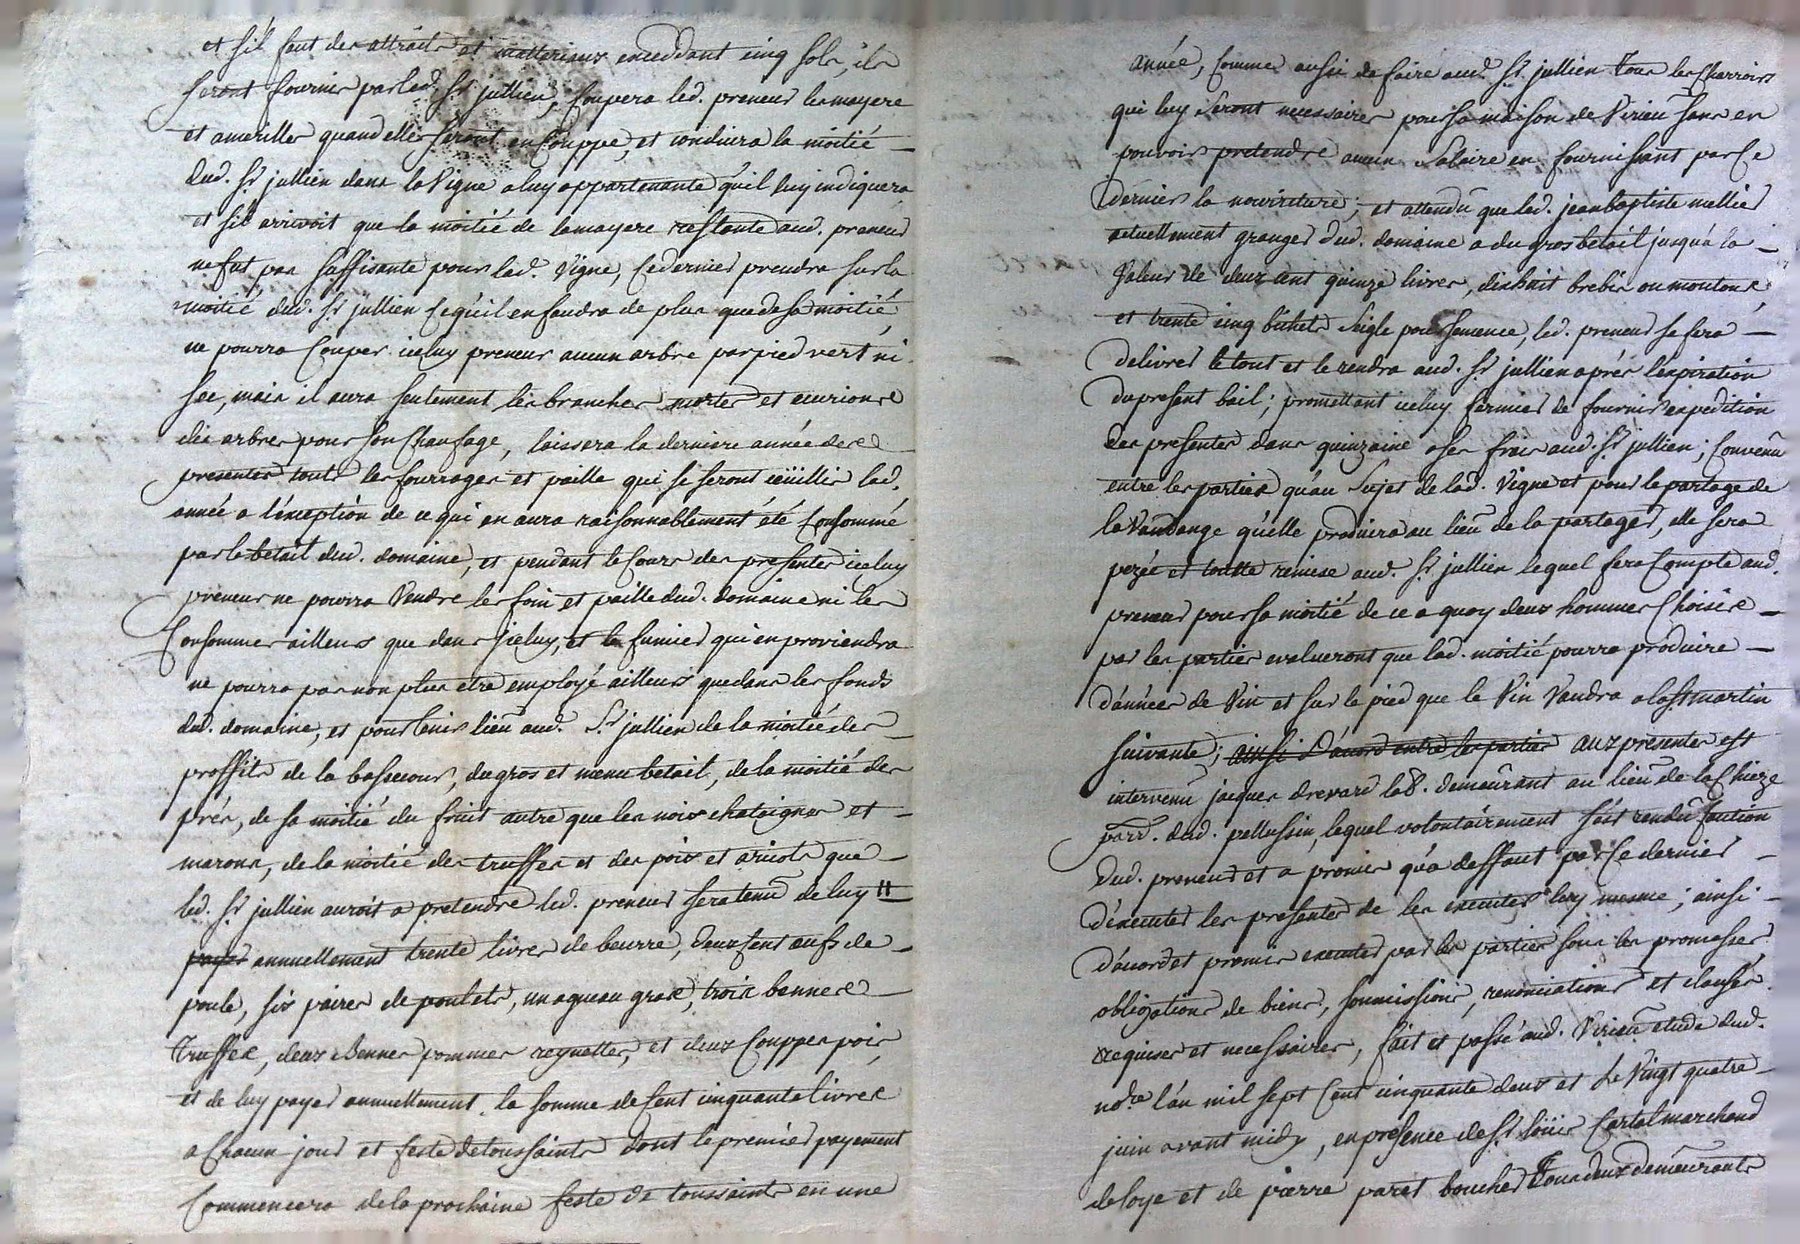 et s'il faut des attraits et matteriaux exceddant cinq sols, ils
seront fournis par led. Sr. jullien, Coupera led. preneur les mayere
et amarilles quand elles seront en Couppe, et conduira la moitié
dud. Sr. jullien dans la Vigne a luy appartenante qu'il luy indiquera
et s'il arrivoit que la moitié de lamayere restante aud. preneur
ne fut pas suffisante pour lad. Vigne, Ce dernier prendra sur la
moitié dud. Sr. jullien Ce qu'il en faudra de plus que de sa moitié,
ne pourra Couper iceluy preneur aucun arbre par pied vert ni
sec, mais il aura seulement les branches mortes et
des arbres pour son Chaufage, laissera la derniere année des
presentes touts les fourrages et paille qui se seront ceüillis lad.
année a l'éxception de ce qui en aura raisonnablement été Consommé
par le betail dud. domaine, et pendant le Cours des presentes iceluy
preneur ne pourra Vendre les foin et paille dud. domaine ni les
Consommer ailleurs que dans iceluy, et le fumier qui en proviendra
ne pourra pas non plus etre employé ailleurs que dans les fonds
dud. domaine, et pour tenir lieu aud. Sr. jullien de la moitié des
proffits de la bassecour, du gros et menu betail, de la moitié des
prés, de sa moitié du fruit autre que les nois chataignes et
marons, de la moitié des truffes et des pois et aricots que
led. Sr. jullien auroit a pretendre led. preneur sera tenu de luy
payer annuellement trente livres de beurre, deux Cent oeufs de
poule, six paires de poulets, un agneau gras, trois bennes
Truffes, deux Bennes pommes reynettes, et deux Couppes pois,
et de luy payer annuellement la somme de Cent cinquante livres
a Chacun jour et feste de toussaints dont le premier payement
Commencera de la prochaine feste de toussaints en une
année, Comme aussi de faire aud. Sr. jullien Tous les Charrois
qui luy Seront necessaires pour sa maison de Virieu sans en
pouvoir pretendre aucun Salaire en fournissant par Ce
dernier la nourriture, et attendu que led. jean baptiste mellier
actuellement granger dud. domaine a du gros betail jusqu'a la
Valeur de deux cent quinze livres, dixhuit brebis ou moutons,
et trente cinq bichets Seigle pour Semence, led. preneur se fera
delivrer le tout et le rendra aud. Sr. jullien aprés l'expiration
du present bail; promettant iceluy fermier de fournir expedition
des presentes dans quinzaine a ses frais aud. Sr. jullien; Convenu
entre les parties qu'au Sujet de lad. Vigne et pour le partage de
la Vandange qu'elle produira au lieu de la partager, elle sera
pezée et toutte remise aud. Sr. jullien lequel fera Compte aud.
preneur pour sa moitié de ce a quoy deux hommes Choisis
par les parties evalueront que lad. moitié pourra produire
d'années de Vin et sur le pied que le Vin Vaudra a la St. martin
suivante; ainsi d'acord entre les parties aux presentes est
intervenu jacques drevard lab. demeurant au lieu de la Chieze
parr. dud. pellussin, lequel volontairement s'est rendu Caution
dud. preneur et a promis qu'a deffaut par Ce dernier
d'éxecuter les presentes de les executer luy mesme; ainsi
d'acord et promis executer par les parties sous les promesses
obligations de biens, soumissions, renonciations et clauses
requises et necessaires, fait et passé aud. Virieu etude dud.
nore. l'an mil sept Cent cinquante deux et Le Vingt quatre
juin avant midy, en presence de Sr. Loüis Cartal marchand
de loye et de pierre paret boucher Tous deux demeurants